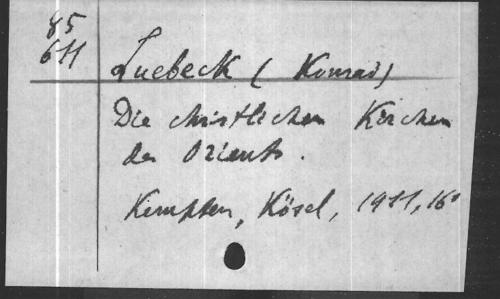 85
611
Luebeck (Konrad)
Die christlichen Kirchen
des Orients.
Kempten, Kösel, 1911, 16°